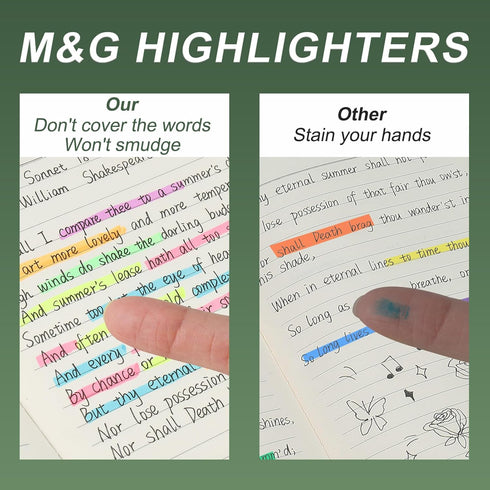 M&G HIGHLIGHTERS
Our
Don't cover the words
Won't smudge
Sonnet 1
William Shakespeare
all I compare thee to a summer's d
art more lovely and more temper
gh winds do shake the darling buds
And summer's lease hath all too s
Sometime too the eye of hea
And often old complex
And every
By chance or
But thy eternal
Nor lose possession
Nor shall Death
Other
Stain your hands
y eternal summer shall not
lose possession of that fair thou ow'st,
or shall Death brag thou wander'st in
his shade,
When in eternal lines to time thou
So long as breathe, or
So long lives
shines,
mm'd,